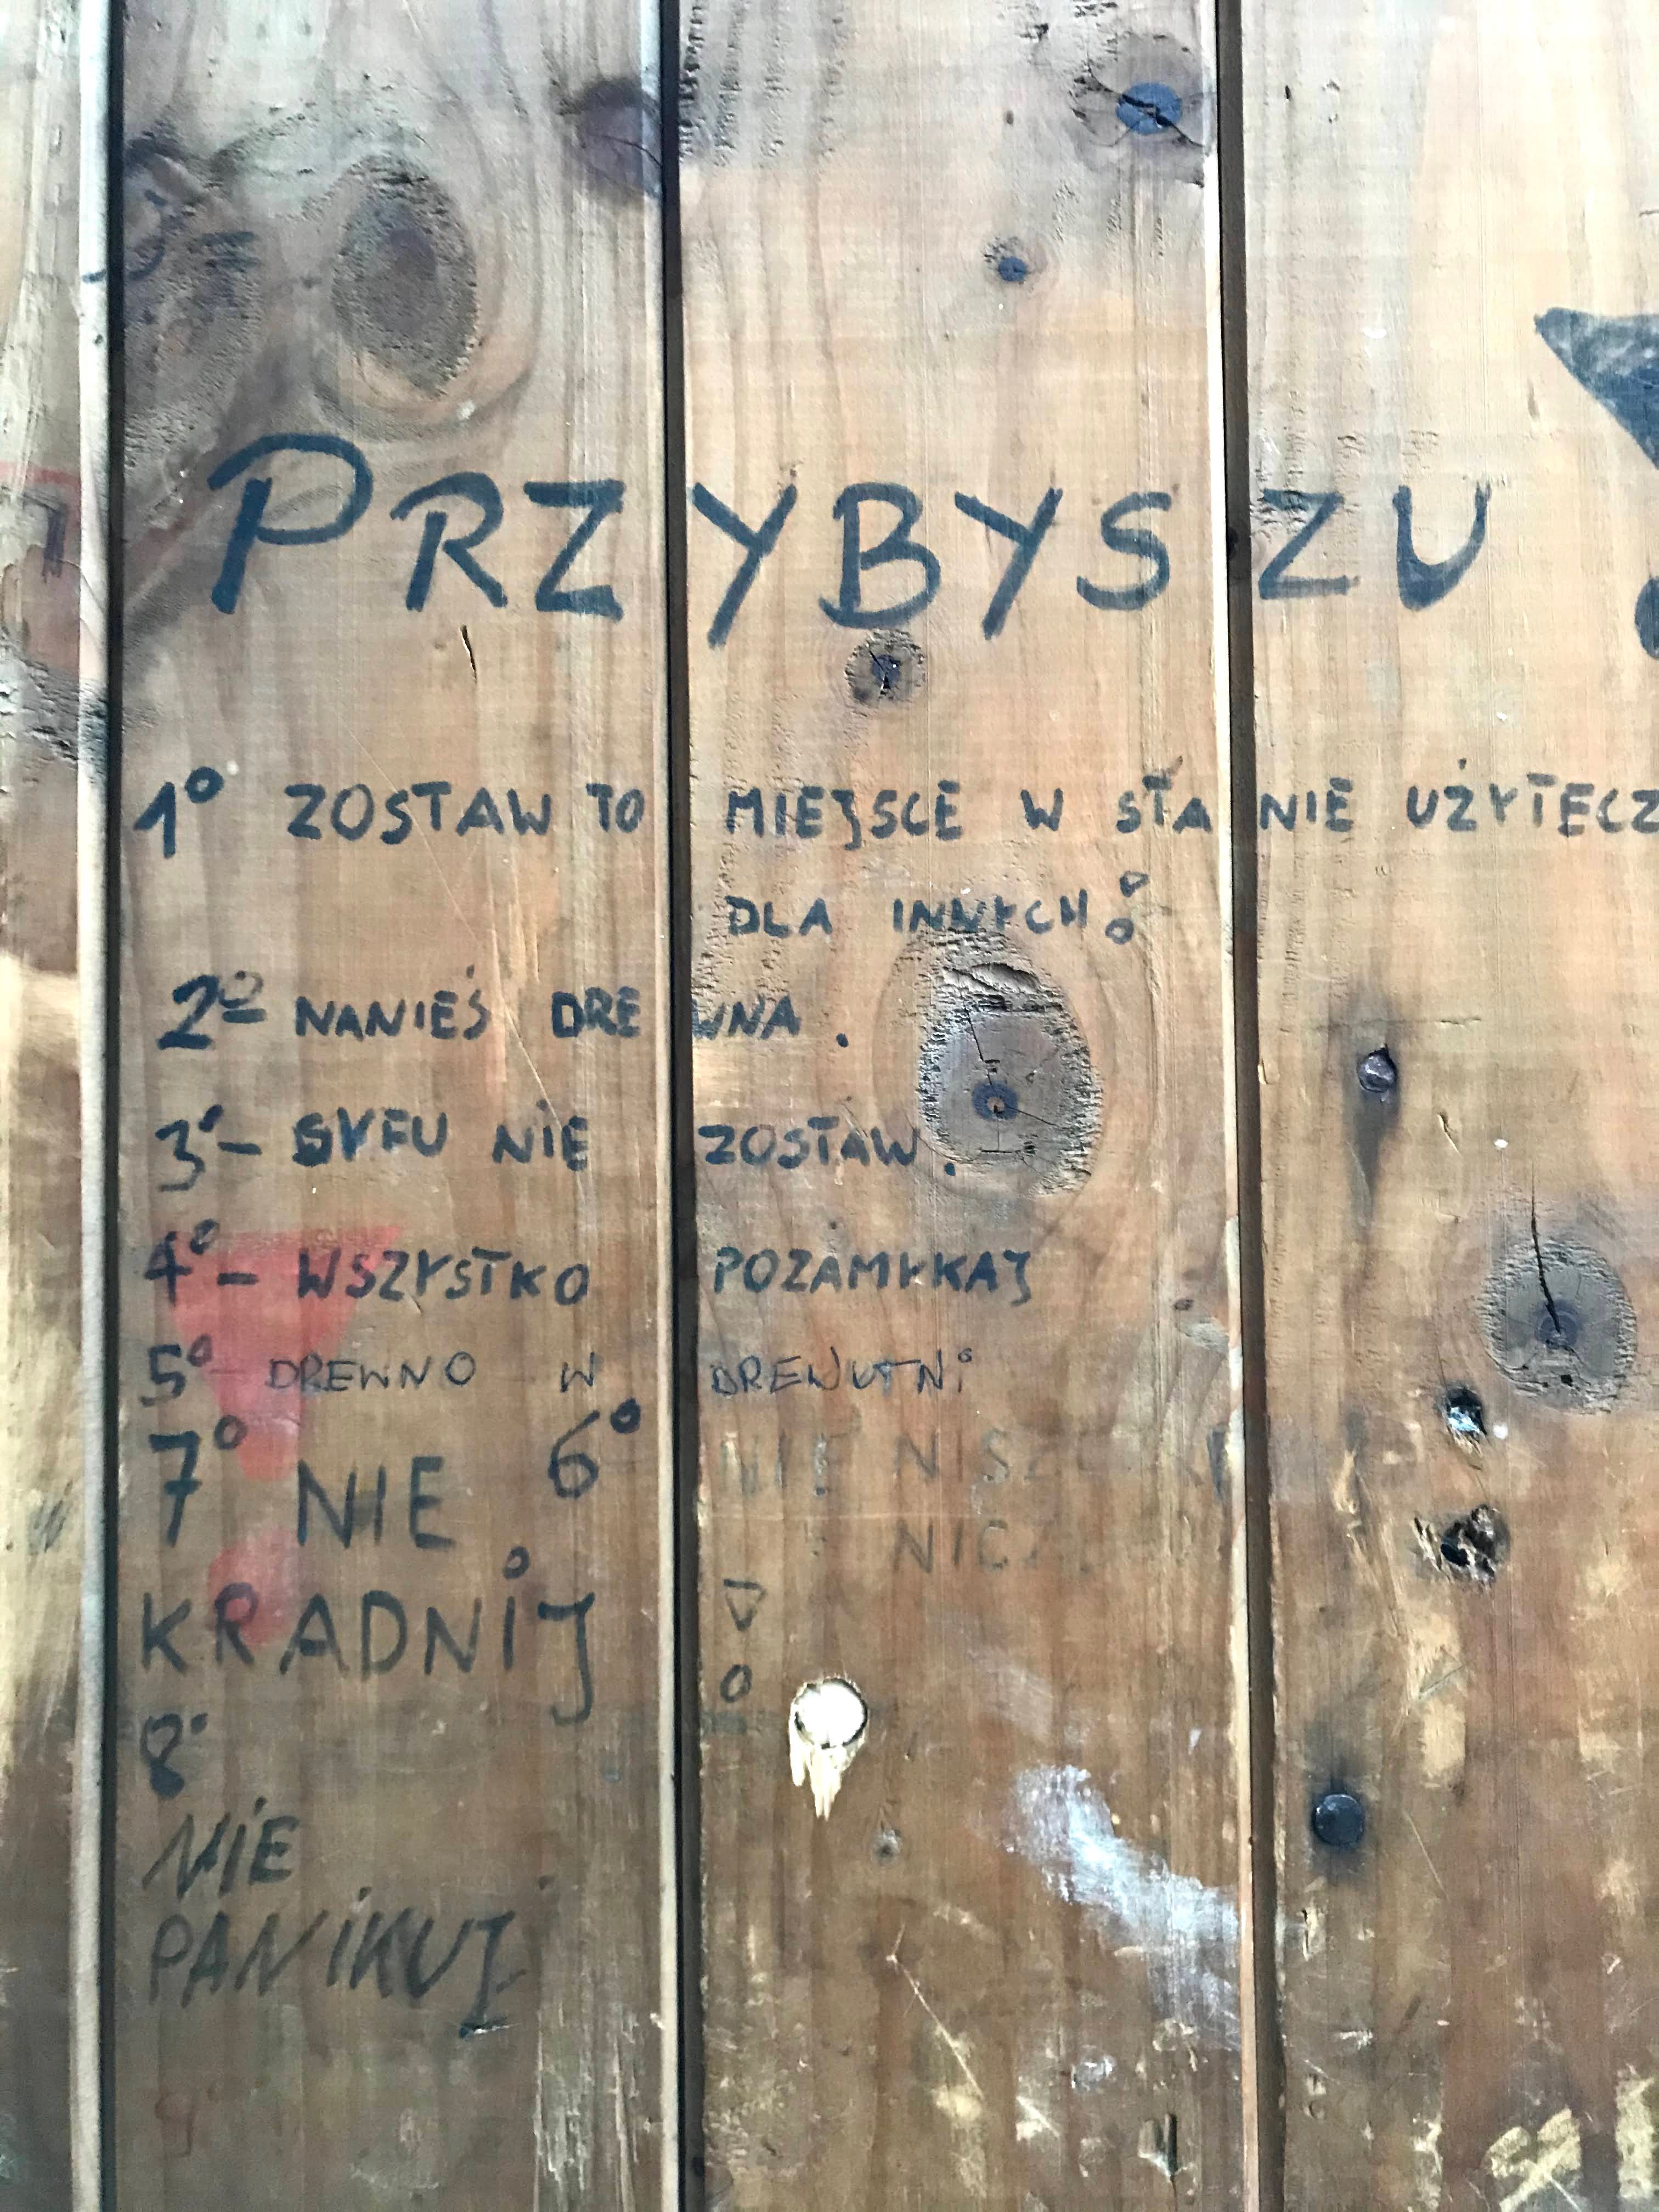 PRZYBYSZU !
1° ZOSTAW TO MIEJSCE W STANIE UŻYTECZ
DLA INNYCH!
2° NANIEŚ DREWNA.
3°- SYFU NIE ZOSTAW.
4°- WSZYSTKO POZAMYKAJ
5°- DREWNO W DREWUTNi
6° NIE NISZCZ
NICZEGO
7° NIE
KRADNiJ !
8°
NiE
PANiKUJ
9°